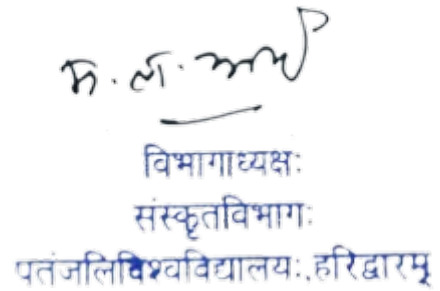 विभागाध्यक्षः
संस्कृतविभागः
पतंजलिविश्वविद्यालयः, हरिद्वारम्